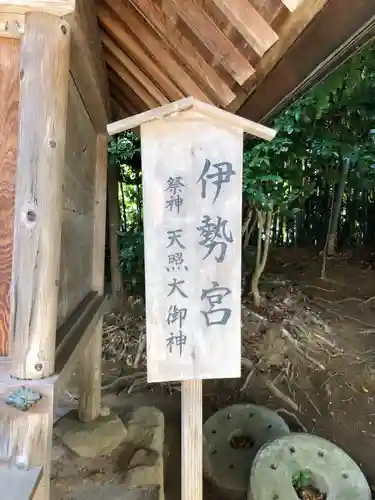 伊勢宮
祭神 天照大御神